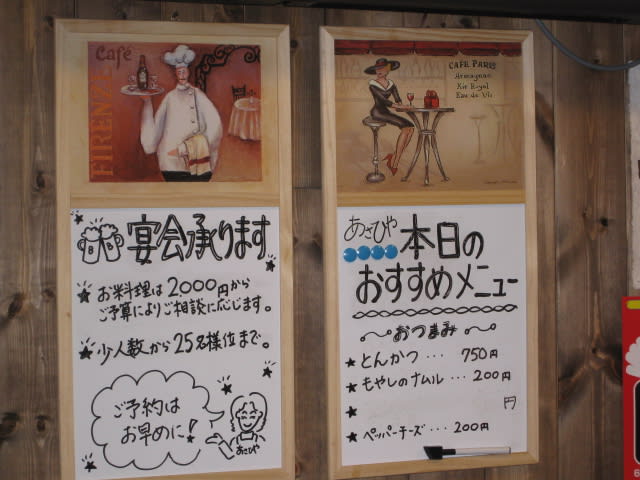 Café
FIRENZE
宴会承ります
★お料理は2000円から
ご予算によりご相談に応じます。
★少人数から25名様位まで。
ご予約は
お早めに!
あさひや
CAFE PARIS
Armagnac
Kir Royal
Eau de Vie
あさひや
本日の
おすすめメニュー
おつまみ
★とんかつ・・・750円
★もやしのナムル・・・200円
★ 円
★ペッパーチーズ・・・200円